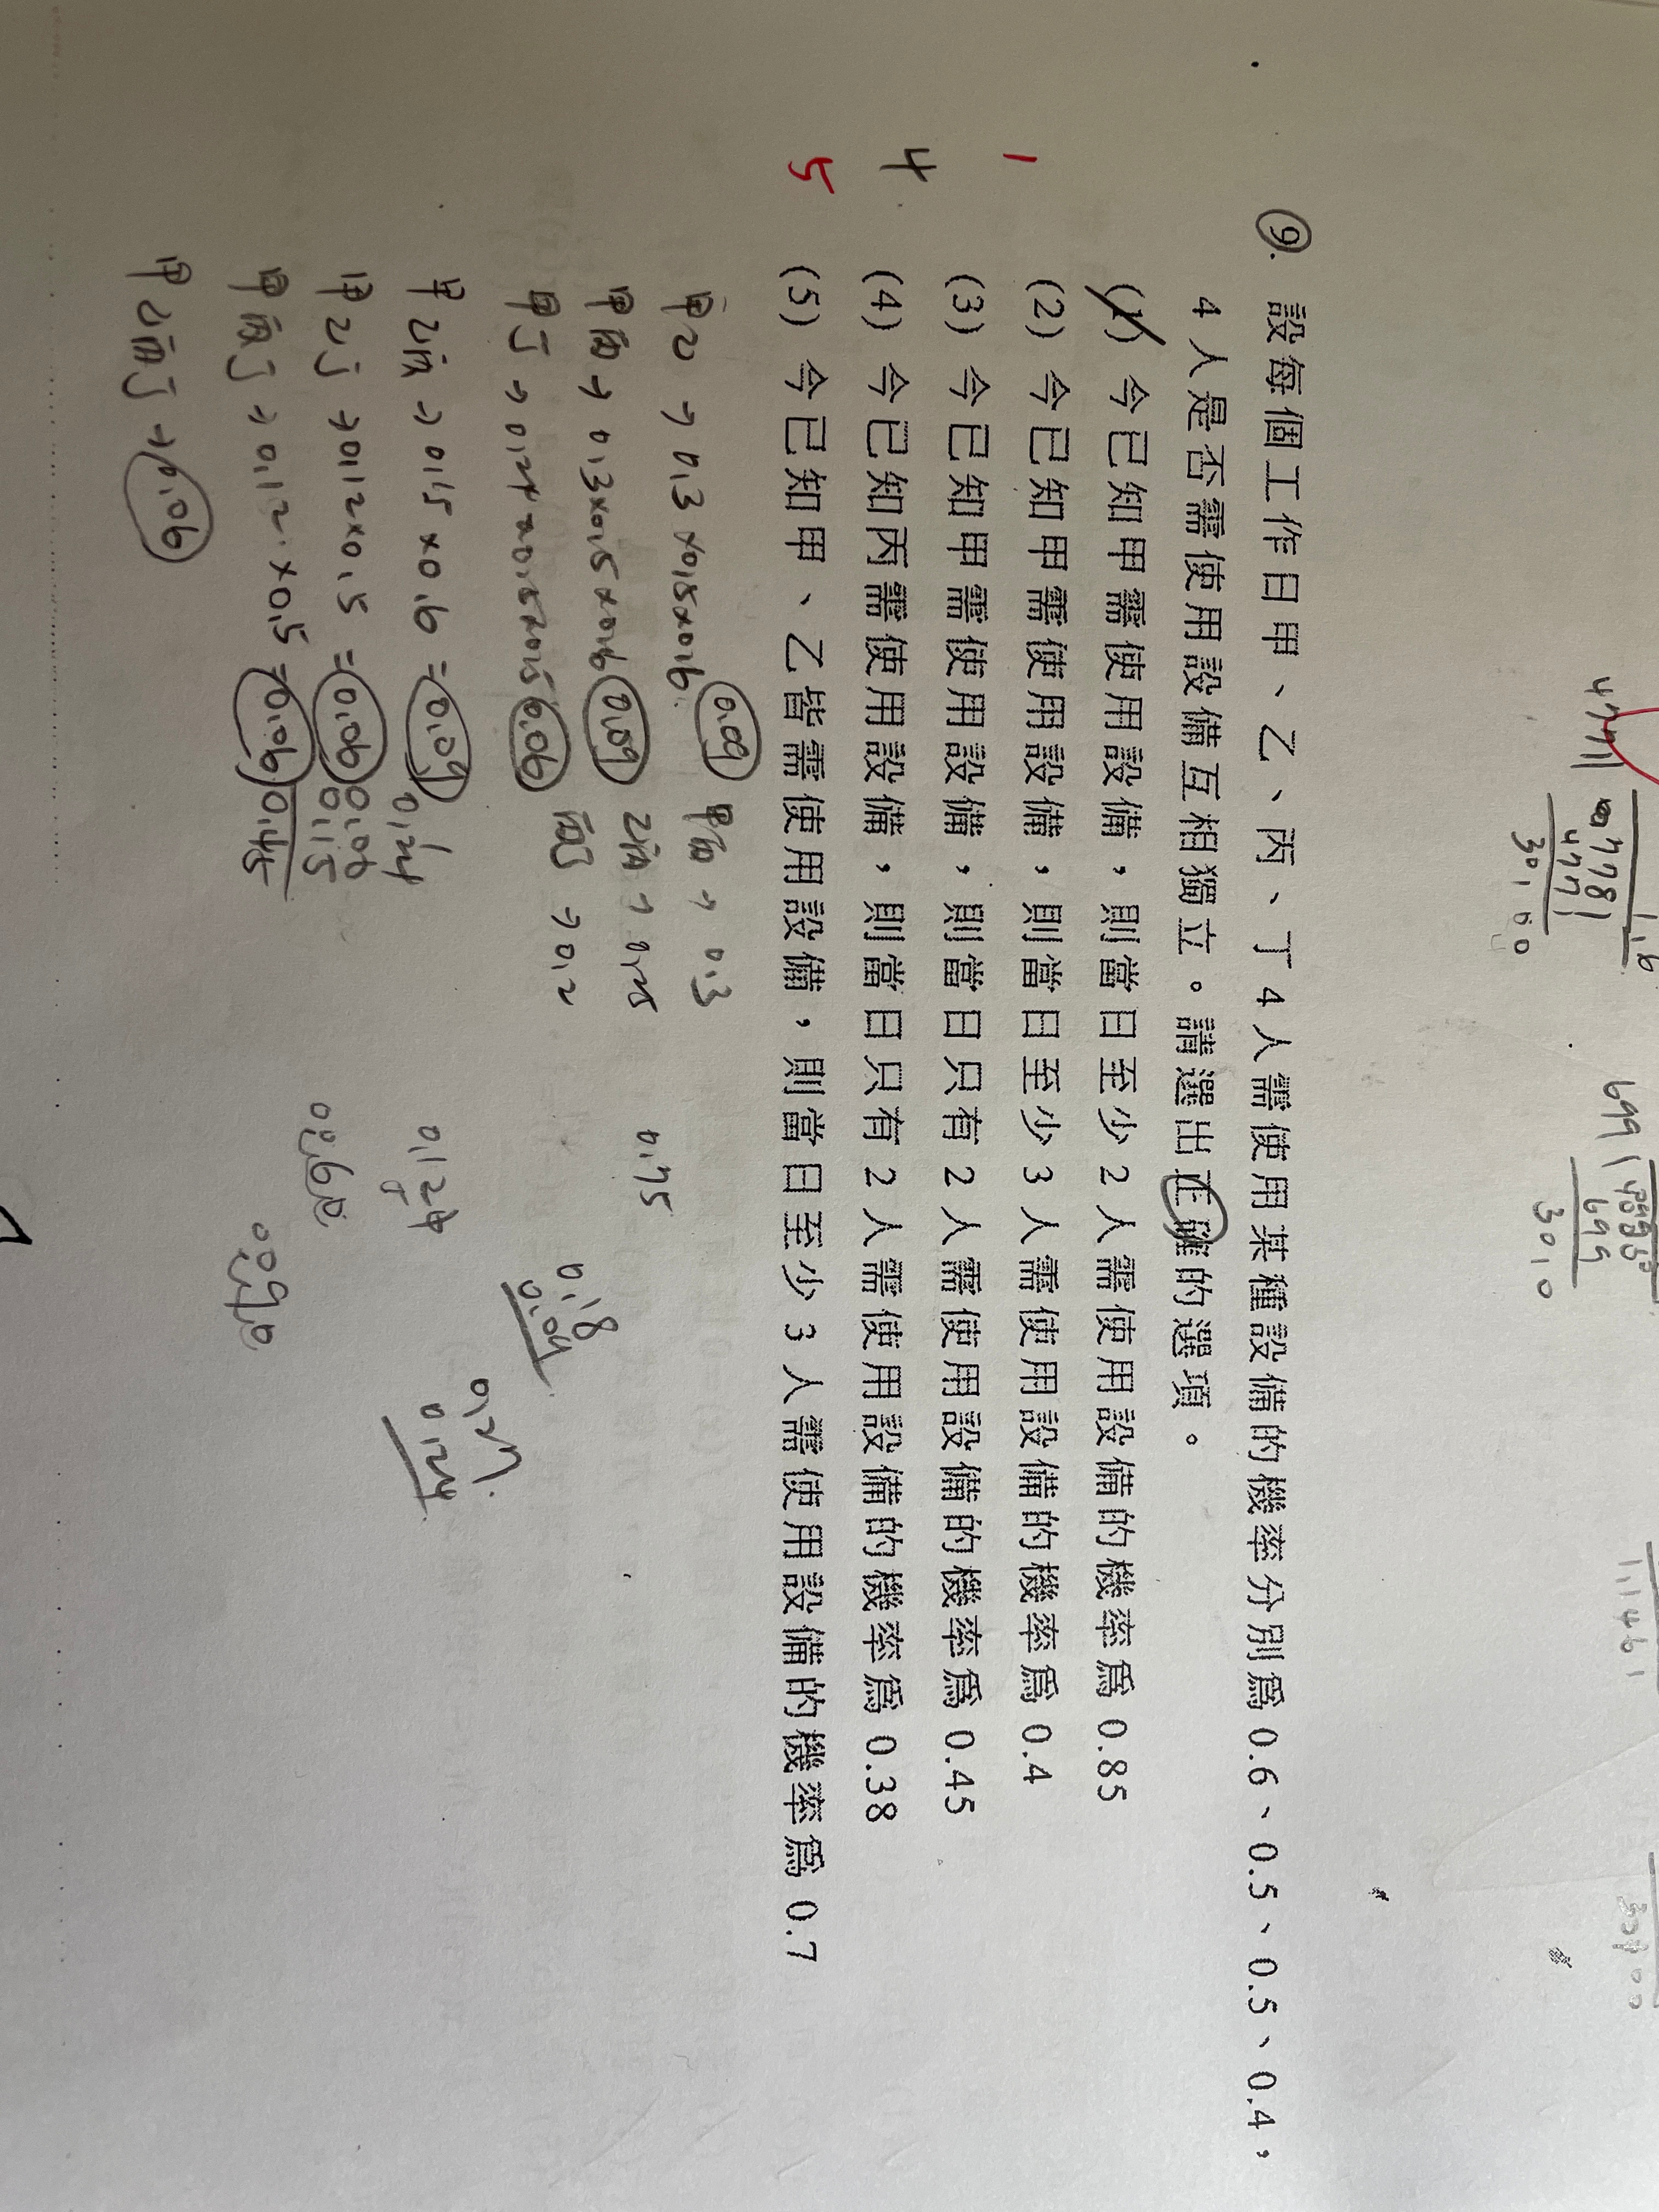 4771
8778
4771
30100
699
699
3010
11461
9. 設每個工作日甲、乙、丙、丁 4 人需使用某種設備的機率分別為 0.6、0.5、0.5、0.4，
4 人是否需使用設備互相獨立。請選出正確的選項。
(1) 今已知甲需使用設備，則當日至少 2 人需使用設備的機率為 0.85
(2) 今已知甲需使用設備，則當日至少 3 人需使用設備的機率為 0.4
1
(3) 今已知甲需使用設備，則當日只有 2 人需使用設備的機率為 0.45
4
(4) 今已知丙需使用設備，則當日只有 2 人需使用設備的機率為 0.38
5
(5) 今已知甲、乙皆需使用設備，則當日至少 3 人需使用設備的機率為 0.7
甲乙 → 0.3×0.5×0.6 0.09
甲丙 → 0.3
甲丙 → 0.3×0.5×0.6 0.09
乙丙 → 0.25
0.75
甲丁 → 0.24×0.5×0.5 0.06
丙丁 → 0.2
0.18
甲乙丙 → 0.15×0.6 = 0.09
0.24
0.124
0.21
0.24
甲乙丁 → 0.12×0.5 = 0.06
0.06
0.15
甲丙丁 → 0.12×0.5 = 0.06
0.45
甲乙丙丁 → 0.06